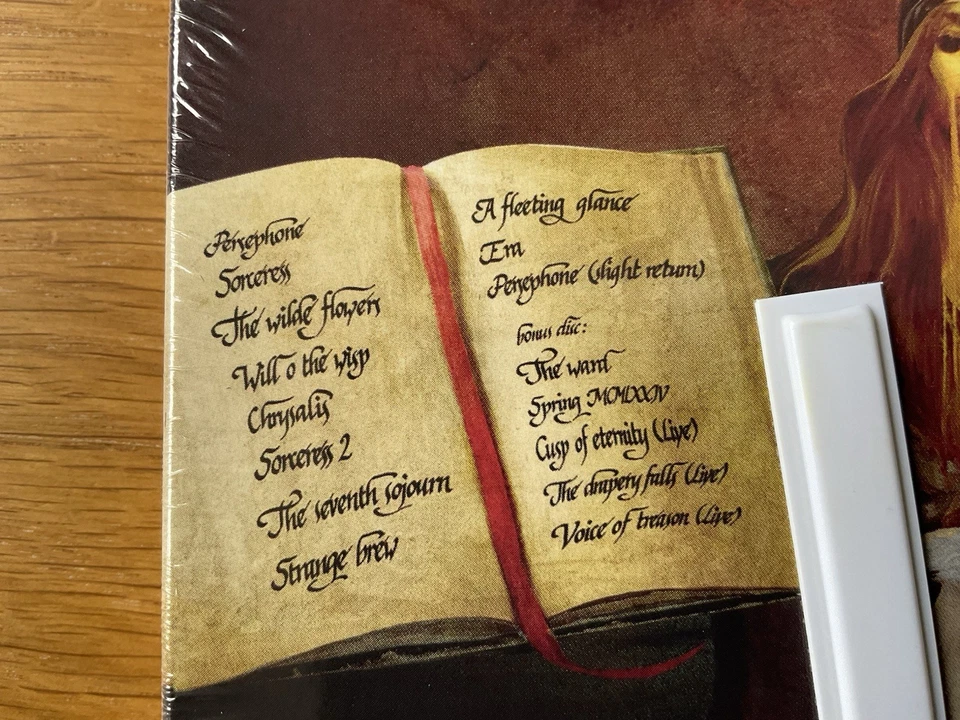 Persephone
Sorceress
The wilde flowers
Will o the wisp
Chrysalis
Sorceress 2
The seventh sojourn
Strange brew
A fleeting glance
Era
Persephone (slight return)
bonus disc:
The ward
Spring MCMLXXIV
Cusp of eternity (Live)
The drapery falls (Live)
Voice of treason (Live)